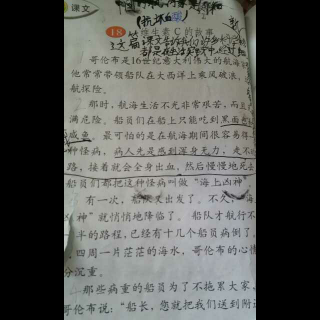 课文
18 维生素C的故事
哥伦布是16世纪意大利伟大的航海
他常常带领船队在大西洋上乘风破浪,
航探险。
那时,航海生活不光非常艰苦,而且
满危险。船员们在船上只能吃到黑面
咸鱼。最可怕的是在航海期间很容易得
种怪病,病人先是感到浑身无力,走不
路,接着就会全身出血,然后慢慢地死去
船员们都把这种怪病叫做“海上凶神”
有一次,船队又出发了。不久,“海
凶神”就悄悄地降临了。船队才航行不
一半的路程,已经有十几个船员病倒了
四周一片茫茫的海水,哥伦布的心情
分沉重。
那些病重的船员为了不拖累大家,
哥伦布说:“船长,您就把我们送到附近